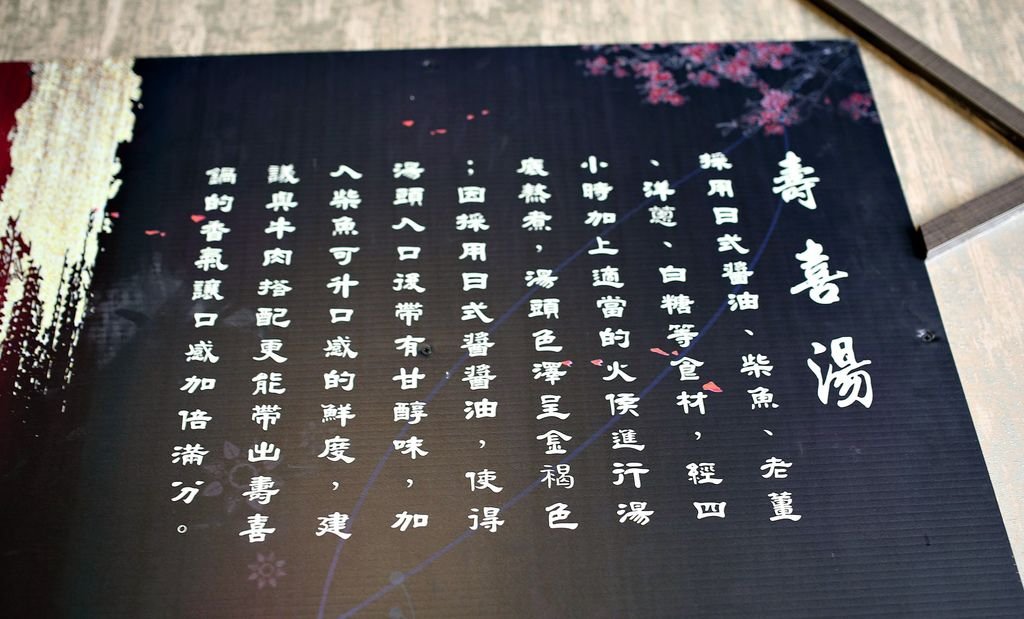 壽喜湯
採用日式醬油、柴魚、老薑
、洋蔥、白糖等食材，經四
小時加上適當的火侯進行湯
底熬煮，湯頭色澤呈金褐色
；因採用日式醬醬油，使得
湯頭入口後帶有甘醇味，加
入柴魚可升口感的鮮度，建
議與牛肉搭配更能帶出壽喜
鍋的香氣讓口感加倍滿分。